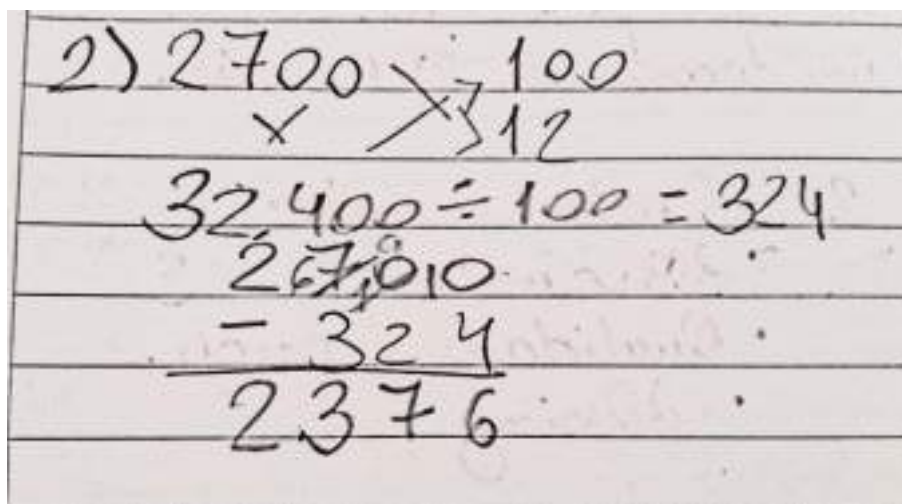 2) 2700 100
x 12
32.400 ÷ 100 = 324
2700
- 324
2376